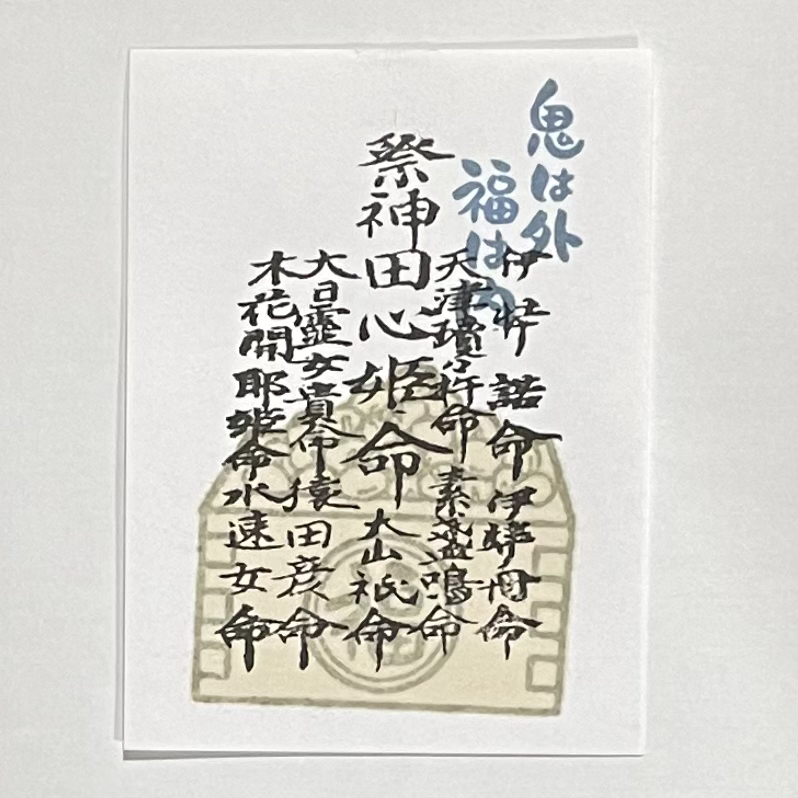 鬼は外
福は内
伊弉諾命 伊弉冊命
天津瓊々杵命 素盞鳴命
祭神 田心姫命 大山祇命
大日霊女貴命 猿田彦命
木花開耶姫命 水速女命
福